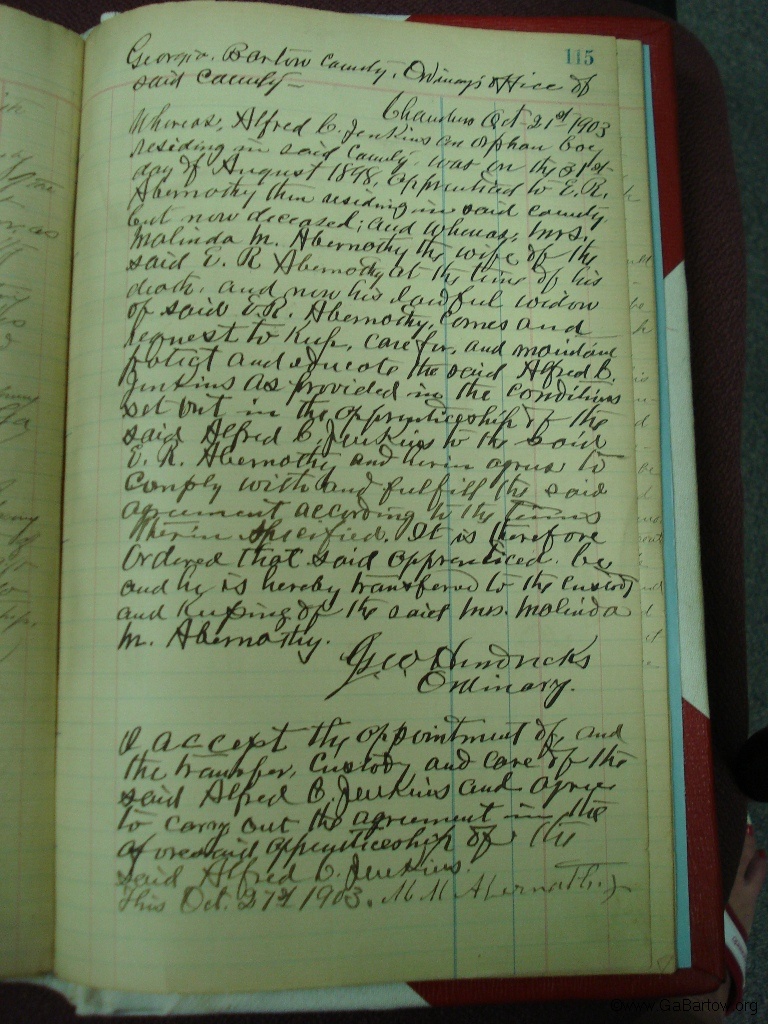 115
Georgia, Bartow County, Ordinary's office of
said County—
Chambers Oct 21st 1903
Whereas, Alfred C. Jenkins an orphan boy
residing in said County was on the 31st
day of August 1898, apprenticed to E. R.
Abernothy then residing in said County
but now deceased; and whereas, Mrs.
Malinda M. Abernothy the wife of the
said E. R. Abernothy at the time of his
death, and now his lawful widow
of said E. R. Abernothy, comes and
request to keep, care for, and maintain
protect and educate the said Alfred C.
Jenkins as provided in the conditions
set out in the apprenticeship of the
said Alfred C. Jenkins to the said
E. R. Abernothy and herin agrees to
comply with and fulfill the said
agreement according to the terms
therin specified. It is therefore
ordered that said apprenticed be
and he is hereby transferred to the custody
and keeping of the said Mrs. Malinda
M. Abernothy.
Geo Hendricks
Ordinary.
I accept the appointment of, and
the transfer, custody and care of the
said Alfred C. Jenkins and agree
to carry out the agreement in the
aforesaid apprenticeship of the
said Alfred C. Jenkins.
This Oct. 27th 1903. M M Abernathy
www.GaBartow.org